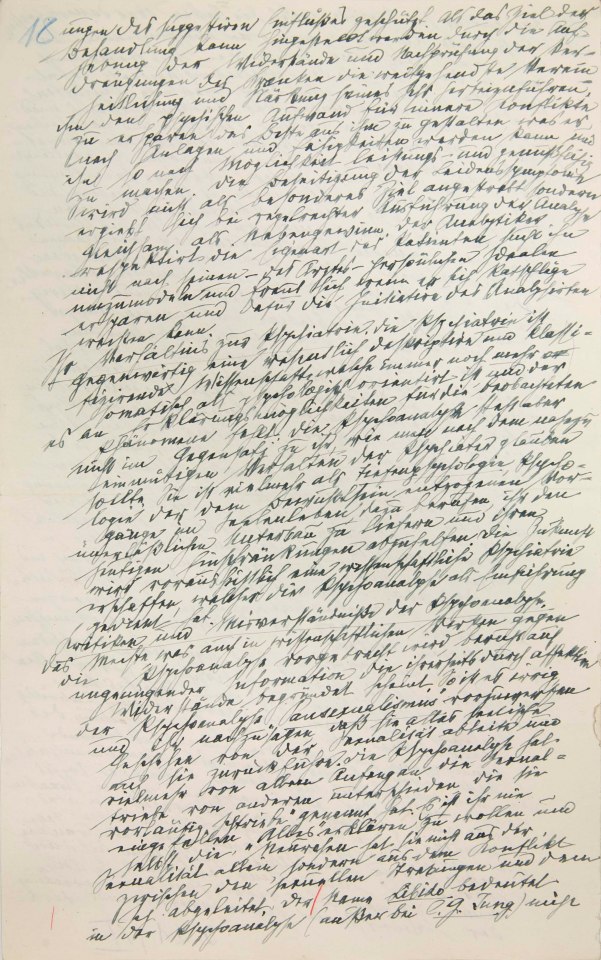 18 ungen des suggestiven Einflußes geschützt. Als das Ziel der
Behandlung kann hingestellt werden, durch die Auf-
hebung der Widerstände und Nachprüfung der Ver-
drängungen des Kranken die weitgehendste Verein-
heitlichung und Stärkung seines Ichs herbeizuführen,
ihm den psychischen Aufwand für innere Konflikte
zu ersparen, das Beste aus ihm zu gestalten, was er
nach Anlagen und Fähigkeiten werden kann und
ihn so nach Möglichkeit leistungs- und genußfähig
zu machen. Die Beseitigung der Leidenssymptome
wird nicht als besonderes Ziel angestrebt, sondern
ergibt sich bei regelrechter Ausführung der Analyse
gleichsam als Nebengewinn. Der Analytiker
respektirt die Eigenart des Patienten, sucht ihn
nicht nach seinen – des Arztes – persönlichen Idealen
umzumodeln und freut sich wenn er sich Ratschläge
ersparen und dafür die Initiative des Analysirten
wecken kann.
Ihr Verhältnis zur Psychiatrie. Die Psychiatrie ist
gegenwärtig eine wesentlich deskriptive und klassi-
fizirende Wissenschaft, welche immer noch mehr
somatisch als psychologisch orientirt ist und der
es an Erklärungsmöglichkeiten für die beobachteten
Phänomene fehlt. Die Psychoanalyse steht aber
nicht im Gegensatz zu ihr, wie man nach dem nahezu
einmütigen Verhalten der Psychiater glauben
sollte. Sie ist vielmehr als Tiefenpsychologie, Psycho-
logie der dem Bewußtsein entzogenen Vor-
gänge im Seelenleben, dazu berufen ihr den
unerläßlichen Unterbau zu liefern und ihren
heutigen Einschränkungen abzuhelfen. Die Zukunft
wird voraussichtlich eine wissenschaftliche Psychiatrie
erschaffen, welcher die Psychoanalyse als Einführung
gedient hat.
Kritiken und Misverständniße der Psychoanalyse.
Das Meiste was auch in wissenschaftlichen Werken gegen
die Psychoanalyse vorgebracht wird, beruht auf
ungenügender Information, die ihrerseits durch affektive
Widerstände begründet scheint. So ist es irrig
der Psychoanalyse „Pansexualismus" vorzuwerfen
und ihr nachzusagen, daß sie alles seelische
Geschehen von der Sexualität ableite und
auf sie zurückführe. Die Psychoanalyse hat
vielmehr von allem Anfang an die Sexual-
triebe von anderen unterschieden, die sie
vorläufig „Ichtriebe" genannt hat. Es ist ihr nie
eingefallen „Alles" erklären zu wollen und
selbst die Neurosen hat sie nicht aus der
Sexualität allein sondern aus dem Konflikt
zwischen den sexuellen Strebungen und dem
Ich abgeleitet. Der Name Libido bedeutet
in der Psychoanalyse (außer bei C. G. Jung) nicht